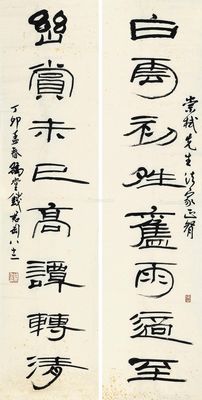 白雲初夝舊雨適至
先生法家正
幽賞未已高譚轉清
丁卯孟春豫堂錢君匋八十二